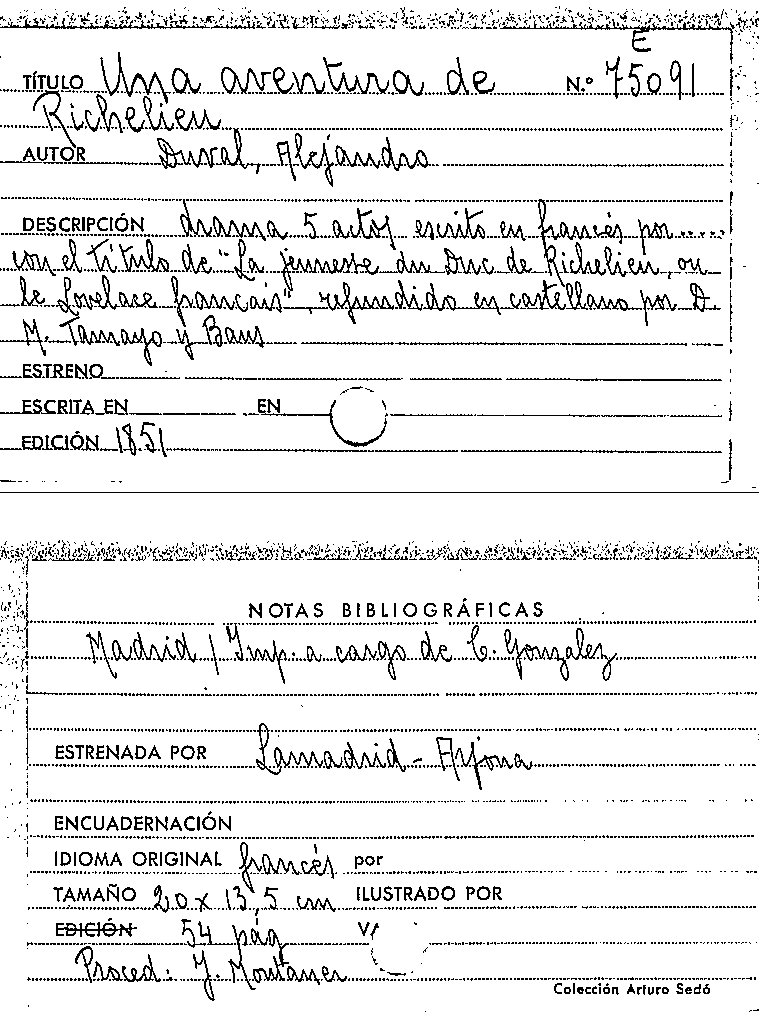 E
TÍTULO Una aventura de N.º 75091
Richelieu
AUTOR Duval, Alejandro
DESCRIPCIÓN drama 5 actos escrito en francés por.....
con el título de "La jeunesse du Duc de Richelieu, ou
le Lovelace français", refundido en castellano por D.
M. Tamayo y Baus
ESTRENO
ESCRITA EN EN
EDICIÓN 1851
NOTAS BIBLIOGRÁFICAS
Madrid / Imp. a cargo de C. Gonzalez
ESTRENADA POR Lamadrid - Arjona
ENCUADERNACIÓN
IDIOMA ORIGINAL francés por
TAMAÑO 20 x 13,5 cm ILUSTRADO POR
EDICIÓN 54 pág V/
Proced: J. Montaner
Colección Arturo Sedó